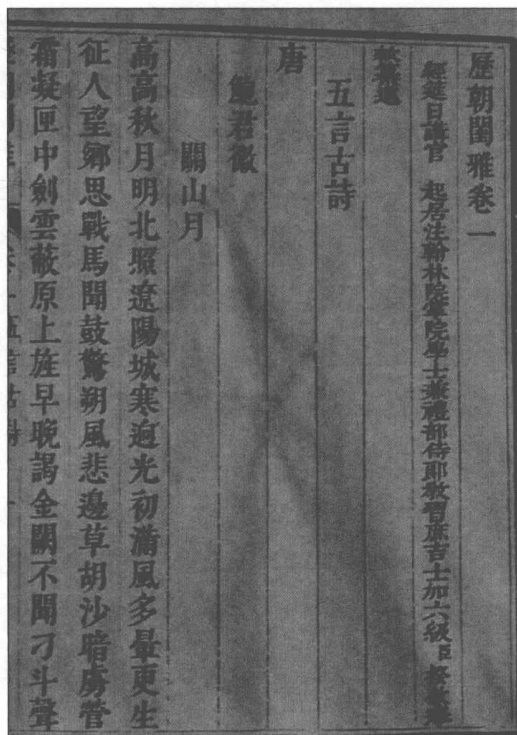 歷朝閨雅卷一
經筵日講官 起居注翰林院掌院學士兼禮部侍郎教習庶吉士加六級臣揆敘奉
敕纂進
五言古詩
唐
鮑君徽
關山月
高高秋月明北照遼陽城寒逈光初滿風多暈更生
征人望鄉思戰馬聞鼓驚朔風悲邊草胡沙暗虜營
霜凝匣中劍雲蔽原上旌早晚謁金闕不聞刁斗聲